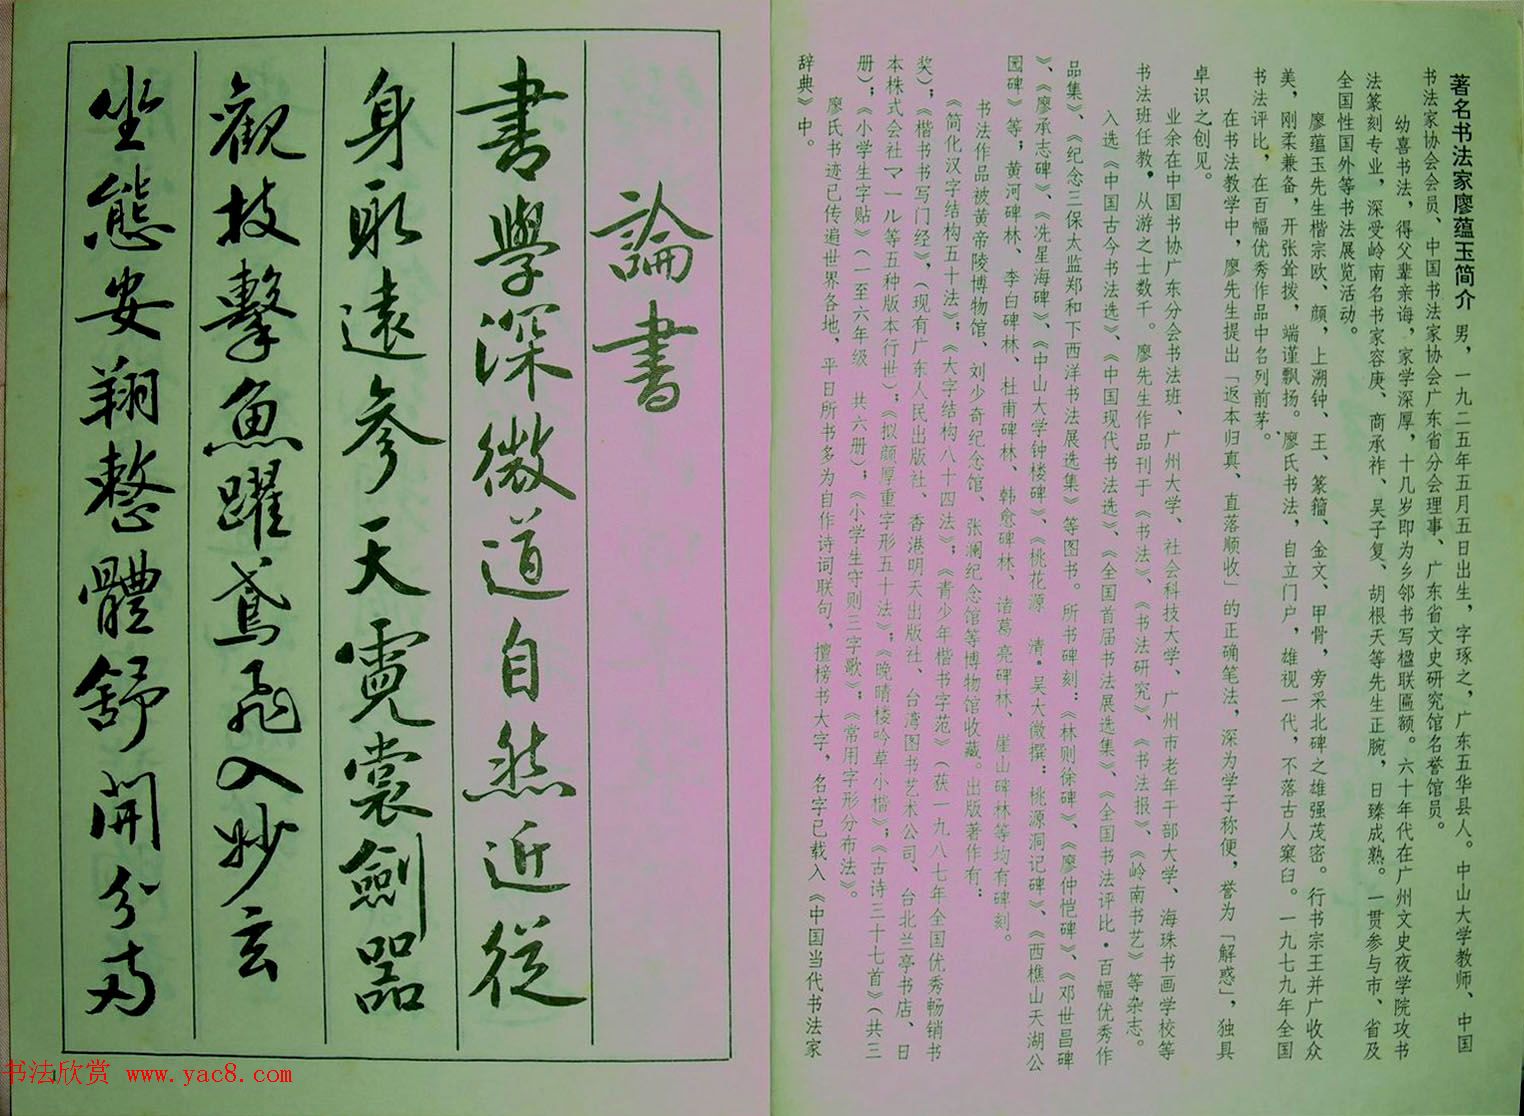 著名书法家廖蕴玉简介 男，一九二五年五月五日出生，字琢之，广东五华县人。中山大学教师、中国
书法家协会会员、中国书法家协会广东省分会理事、广东省文史研究馆名誉馆员。
幼喜书法，得父辈亲诲，家学深厚，十几岁即为乡邻书写楹联匾额。六十年代在广州文史夜学院攻书
法篆刻专业，深受岭南名书家容庚、商承祚、吴子复、胡根天等先生正腕，日臻成熟。一贯参与市、省及
全国性国外等书法展览活动。
廖蕴玉先生楷宗欧、颜，上溯钟、王、篆籀、金文、甲骨，旁采北碑之雄强茂密。行书宗王并广收众
美，刚柔兼备，开张耸拨，端谨飘扬。廖氏书法，自立门户，雄视一代，不落古人窠臼。一九七九年全国
书法评比，在百幅优秀作品中名列前茅。
在书法教学中，廖先生提出「返本归真、直落顺收」的正确笔法，深为学子称便，誉为「解惑」，独具
卓识之创见。
业余在中国书协广东分会书法班、广州大学、社会科技大学、广州市老年干部大学、海珠书画学校等
书法班任教，从游之士数千。廖先生作品刊于《书法》、《书法研究》、《书法报》、《岭南书艺》等杂志。
入选《中国古今书法选》、《中国现代书法选》、《全国首届书法展选集》、《全国书法评比·百幅优秀作
品集》、《纪念三保太监郑和下西洋书法展选集》等图书。所书碑刻：《林则徐碑》、《廖仲恺碑》、《邓世昌碑
》、《廖承志碑》、《冼星海碑》、《中山大学钟楼碑》、《桃花源 清·吴大徵撰：桃源洞记碑》、《西樵山天湖公
园碑》等；黄河碑林、李白碑林、杜甫碑林、韩愈碑林、诸葛亮碑林、崖山碑林等均有碑刻。
书法作品被黄帝陵博物馆、刘少奇纪念馆、张澜纪念馆等博物馆收藏。出版著作有：
《简化汉字结构五十法》；《大字结构八十四法》；《青少年楷书字范》（获一九八七年全国优秀畅销书
奖）；《楷书书写门经》，（现有广东人民出版社、香港明天出版社、台湾图书艺术公司、台北兰亭书店、日
本株式会社マール等五种版本行世）；《拟颜厚重字形五十法》；《晚晴楼吟草小楷》；《古诗三十七首》（共三
册）；《小学生字贴》（一至六年级 共六册）；《小学生守则三字歌》；《常用字形分布法》。
廖氏书迹已传遍世界各地，平日所书多为自作诗词联句，擅榜书大字，名字已载入《中国当代书法家
辞典》中。
論書
書學深微道自然近從
身取遠參天霓裳劍器
觀技擊魚躍鳶飛入妙玄
坐態安翔整體舒開分布
1
书法欣赏 www.yac8.com